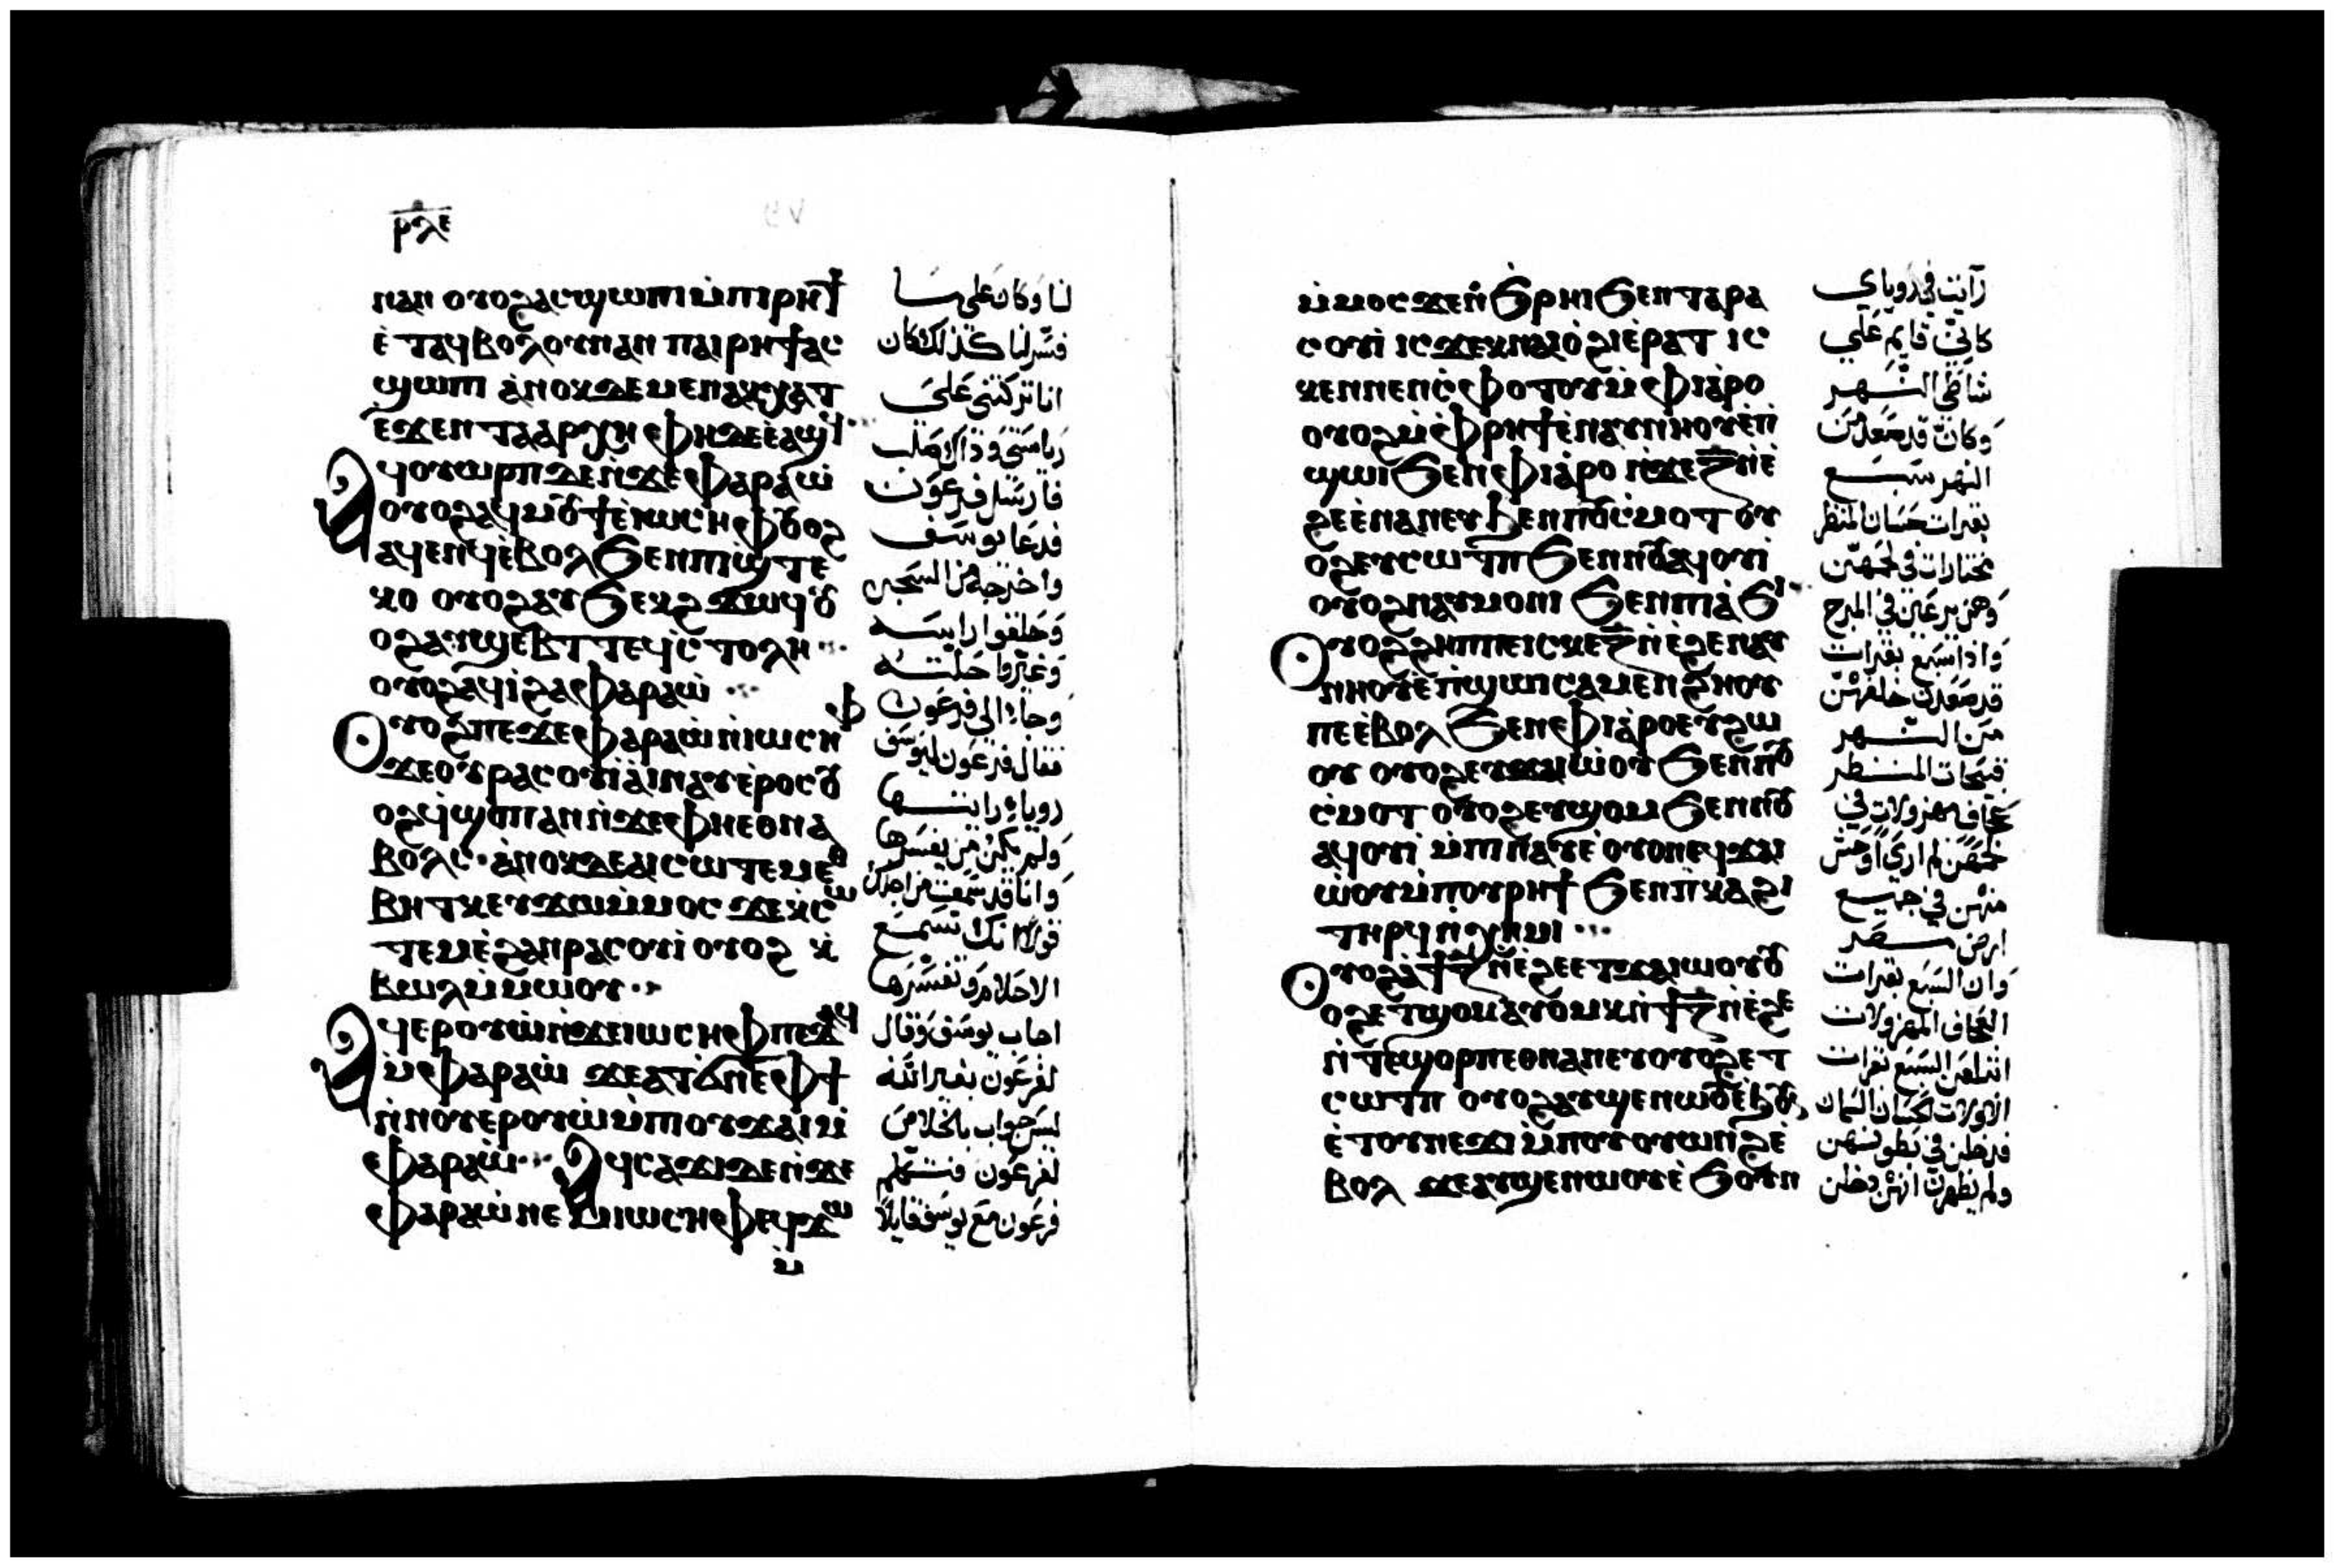 ⲣⲗⲉ
ⲛⲁⲛ ⲟⲩⲟϩⲁⲥϣⲱⲡⲓⲙ̀ⲡⲓⲣⲏϯ
ⲉ̀ⲧⲁϥⲃⲟⲗⲟⲩⲛⲁⲛ ⲡⲁⲓⲣⲏϯⲁⲥ
ϣⲱⲡⲓ ⲁ̀ⲛⲟⲕⲇⲉⲙⲉⲛⲁⲩⲭⲁⲧ
ⲉ̀ϫⲉⲛ ⲧⲁⲁⲣⲭⲏ ⲫⲏⲇⲉⲉ̀ⲁϣϥ
ⲁϥⲟⲩⲱⲣⲡⲇⲉⲛ̀ϫⲉⲫⲁⲣⲁⲱ̀
ⲟⲩⲟϩⲁϥⲙⲟⲩϯⲉ̀ⲓⲱⲥⲏⲫ ⲟⲩⲟϩ
ⲁϥⲉⲛϥⲉ̀ⲃⲟⲗ ϧⲉⲛⲡⲓϣ̀ⲧⲉ
ⲕⲟ ⲟⲩⲟϩⲁⲩϧⲉⲕϩ ϫⲱϥ ⲟⲩ
ⲟϩⲁⲩϣⲉⲃⲧ ⲧⲉϥⲥ̀ⲧⲟⲗⲏ
ⲟⲩⲟϩⲁϥⲓ̀ϩⲁⲫⲁⲣⲁⲱ̀
ⲟⲩⲟϩⲡⲉϫⲉⲫⲁⲣⲁⲱ̀ⲛ̀ⲓⲱⲥⲏⲫ
ϫⲉⲟⲩⲣⲁⲥⲟⲩⲓ̀ⲁⲓⲛⲁⲩⲉ̀ⲣⲟⲥⲟⲩ
ⲟϩϥ̀ϣⲟⲡⲁⲛⲛ̀ϫⲉⲫⲏⲉⲑⲛⲁ
ⲃⲟⲗⲥ ⲁ̀ⲛⲟⲕⲇⲉⲁⲓⲥⲱⲧⲉⲙⲉⲑ
ⲃⲏⲧⲕⲉⲩϫⲱⲙ̀ⲙⲟⲥ ϫⲉⲕⲥⲱ
ⲧⲉⲙⲉ̀ϩⲁⲛⲣⲁⲥⲟⲩⲓ̀ ⲟⲩⲟϩ ⲕ̀
ⲃⲱⲗⲙ̀ⲙⲱⲟⲩ
ⲁϥⲉⲣⲟⲩⲱ̀ⲛ̀ϫⲉⲓⲱⲥⲏⲫⲡⲉϫⲁϥ
ⲙ̀ⲫⲁⲣⲁⲱ̀ ϫⲉⲁⲧϭⲛⲉⲫϯ
ⲛ̀ⲛⲟⲩⲉⲣⲟⲩⲱ̀ⲙ̀ⲡⲟⲩϫⲁⲓⲙ̀
ⲫⲁⲣⲁⲱ̀ ⲁϥⲥⲁϫⲓⲇⲉⲛ̀ϫⲉ
ⲫⲁⲣⲁⲱ̀ⲛⲉⲙⲓⲱⲥⲏⲫⲉϥϫⲱ
ⲙ̀
لنا وكان على ما
فسر لنا كذلك كان
انا تركتني على
رياستي وذاك صلب
فارسل فرعون
فدعا يوسف
واخرجه من السجن
وحلقوا راسه
وغيروا حلته
وجاء الى فرعون
فقال فرعون ليوسف
روياء رايتها
ولم يكن من يفسرها
وانا قد سمعت من اجلك
قولا انك تسمع
الاحلام وتفسرها
اجاب يوسف وقال
لفرعون بغير الله
ليس جواب بالخلاص
لفرعون فتكلم
فرعون مع يوسف قايلا
ⲙ̀ⲙⲟⲥϫⲉⲛ̀ϩ̀ⲣⲏⲓϧⲉⲛⲧⲁⲣⲁ
ⲥⲟⲩⲓ̀ ⲓⲥϫⲉⲕⲛⲁⲓⲟ̀ϩⲓⲉ̀ⲣⲁⲧ ⲓⲥ
ϫⲉⲛⲛⲉⲛⲥ̀ⲫⲟⲧⲟⲩⲙ̀ⲫⲓⲁ̀ⲣⲟ
ⲟⲩⲟϩⲙ̀ⲫⲣⲏϯⲉ̀ⲛⲁⲩⲛⲏⲟⲩⲉ̀ⲡ̀
ϣⲱⲓϧⲉⲛⲫⲓⲁ̀ⲣⲟ ⲛ̀ϫⲉⲍ̄ⲛ̀ⲉ
ϩⲉⲉ̀ⲛⲁⲛⲉⲩϧⲉⲛⲡⲟⲩⲥ̀ⲙⲟⲧ ⲟⲩ
ⲟϩⲉⲩⲥⲱⲧⲡ ϧⲉⲛⲛⲟⲩⲁϥⲟⲩⲓ̀
ⲟⲩⲟϩⲛⲁⲩⲙⲟⲛⲓ ϧⲉⲛⲡⲓⲁ̀ϧⲓ
ⲟⲩⲟϩϩⲏⲡⲡⲉⲓⲥⲕⲉⲍ̄ⲛ̀ⲉ̀ϩⲉⲛⲁⲩ
ⲛⲏⲟⲩⲉ̀ⲡ̀ϣⲱⲓⲥⲁⲙⲉⲛϩⲏⲟⲩ
ⲡⲉⲉ̀ⲃⲟⲗ ϧⲉⲛⲫⲓⲁ̀ⲣⲟⲉⲩϩⲱ
ⲟⲩ ⲟⲩⲟϩⲉⲩϫⲁⲓⲱⲟⲩ ϧⲉⲛⲡⲟⲩ
ⲥ̀ⲙⲟⲧ ⲟⲩⲟϩⲉⲩϣⲟⲙ ϧⲉⲛⲛⲟⲩ
ⲁϥⲟⲩⲓ̀ ⲙ̀ⲡⲓⲛⲁⲩⲉ̀ ⲟⲩⲟⲛⲉϥϫⲁⲓ
ⲱ̀ⲟⲩⲙ̀ⲡⲟⲩⲣⲏϯ ϧⲉⲛⲡⲕⲁϩⲓ
ⲧⲏⲣϥⲛ̀ⲭⲏⲙⲓ
ⲟⲩⲟϩⲁ̀ϯⲍ̄ⲛ̀ⲉ̀ϩⲉⲉⲧϫⲁⲓⲱⲟⲩⲟⲩ
ⲟϩⲉⲧϣⲟⲙⲁⲩⲟⲙⲕⲛ̀ϯⲍ̄ⲛ̀ⲉ̀ϩⲉ
ⲛ̀ⲧⲉϣⲟⲣⲡⲉⲑⲛⲁⲛⲉⲩⲟⲩⲟϩⲉⲧ
ⲥⲱⲧⲡ ⲟⲩⲟϩⲁⲩϣⲉⲛⲱⲟⲩⲉ̀ϧⲟⲩ
ⲉ̀ⲧⲟⲩⲛⲉϫⲓ ⲙ̀ⲡⲟⲩⲟⲩⲱⲛϩⲉ̀
ⲃⲟⲗ ϫⲉⲁⲩϣⲉⲛⲱⲟⲩⲉ̀ ϧⲟⲩⲛ
رآيت في روياي
كاني قايم على
شاطي النهر
وكان قد صعد من
النهر سبع
بقرات حسان المنظر
مختارات في لحمهن
وهن يرعين في المرج
واذا سبع بقرات
قد صعدن خلفهن
من النهر
قبيحات المنظر
عجاف مهزولات في
لحمهن لم ارى اوحش
منهن في جميع
ارض مصر
وان السبع بقرات
العجاف المهزولات
ابتلعن السبع بقرات
الاولات الحسان السمان
فدخلن في بطونهن
ولم يظهرن انهن دخلن